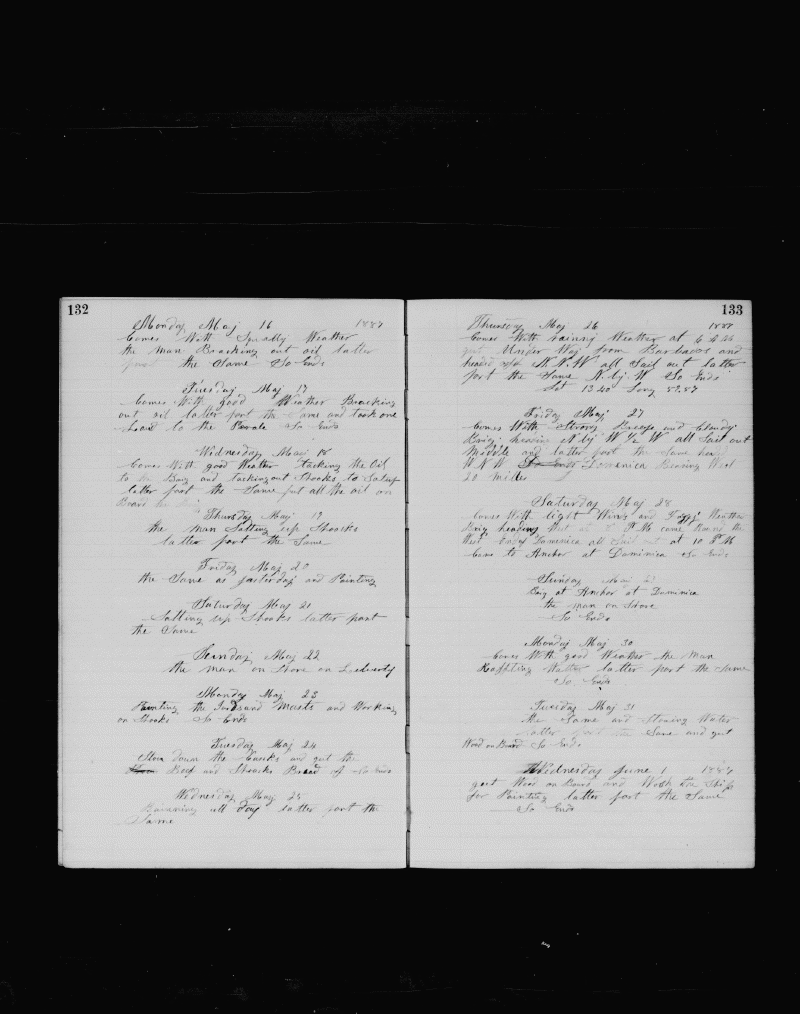 132
Monday May 16 1887
Comes With Squally Weather
the man Breacking out oil latter
part the Same So Ends
Tuesday May 17
Comes With good Weather Breacking
out oil latter part the Same and took one
Load to the So Ends
Wednesday May 18
Comes With good Weather the Oil
to and out Shooks to Satup
latter part the Same put all the oil on
Board
Thursday May 19
the man Satting up Shoocks
latter part the Same
Friday May 20
the Same as yasterday and Painting
Saturday May 21
Satting up Shooks latter part
the Same
Sunday May 22
the man on Shore on Liberty
Monday May 23
Painting the and Masts and Working
on Shooks So Ends
Tuesday May 24
Stow down the Casks and got the
Beef and Shoocks Bread So Ends
Wednesday May 25
all day latter part the
Same
133
Thursday May 26 1887
Comes With rainny Weather at 6 A M
got Under Way from Barbaros and
W all Sail out latter
part the Same N by W So Ends
Lat 13.40 Long 59.57
Friday May 27
Comes With Strong Breeze and Cloudy
Brig heading N by W ½ W all Sail out
Middle and latter part the Same
W N W Domenica Bearing West
20 milles
Saturday May 28
Comes With light Wind and Weather
Brig heading West at P M came Round the
West End of Domenica all Sail out at 10 P M
Came to Anchor at Dominica So Ends
Sunday May
Brig at Anchor at Domenica
the man on Shore
So Ends
Monday May 30
Comes With good Weather the Man
Water latter part the Same
So Ends
Tuesday May 31
the Same and Stowing Water
latter part the Same and got
Wood on Board So Ends
Wednesday June 1 1887
got Wood on Board and Wash the Ship
for Painting latter part the Same
So Ends